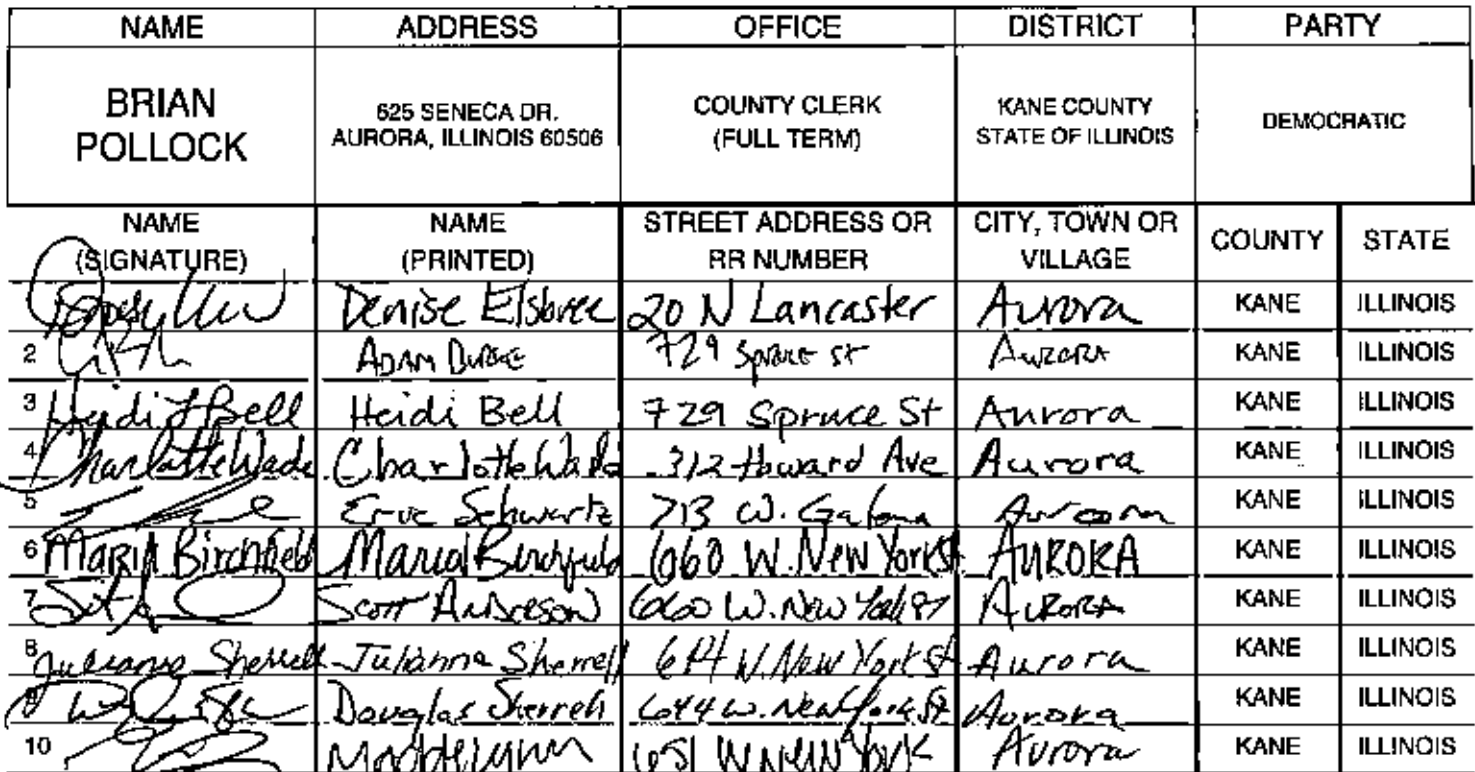 NAME ADDRESS OFFICE DISTRICT PARTY
BRIAN POLLOCK 625 SENECA DR. AURORA, ILLINOIS 60506 COUNTY CLERK (FULL TERM) KANE COUNTY STATE OF ILLINOIS DEMOCRATIC
NAME (SIGNATURE) NAME (PRINTED) STREET ADDRESS OR RR NUMBER CITY, TOWN OR VILLAGE COUNTY STATE
Denise Elsbree 20 N Lancaster Aurora KANE ILLINOIS
2 ADAM 729 Spruce St Aurora KANE ILLINOIS
3 Heidi Bell Heidi Bell 729 Spruce St Aurora KANE ILLINOIS
4 Charlotte Wade Charlotte Wade 312 Howard Ave Aurora KANE ILLINOIS
5 Schwartz 713 W. Galena Aurora KANE ILLINOIS
6 MARIA Birchfield Maria Birchfield 660 W. New York St AURORA KANE ILLINOIS
7 Scott ANDERSON 660 W. New York St AURORA KANE ILLINOIS
8 Julianne Sherrell Julianne Sherrell W. New York St Aurora KANE ILLINOIS
9 Douglas Sherrell 644 W. New York St Aurora KANE ILLINOIS
10 651 W New York Aurora KANE ILLINOIS